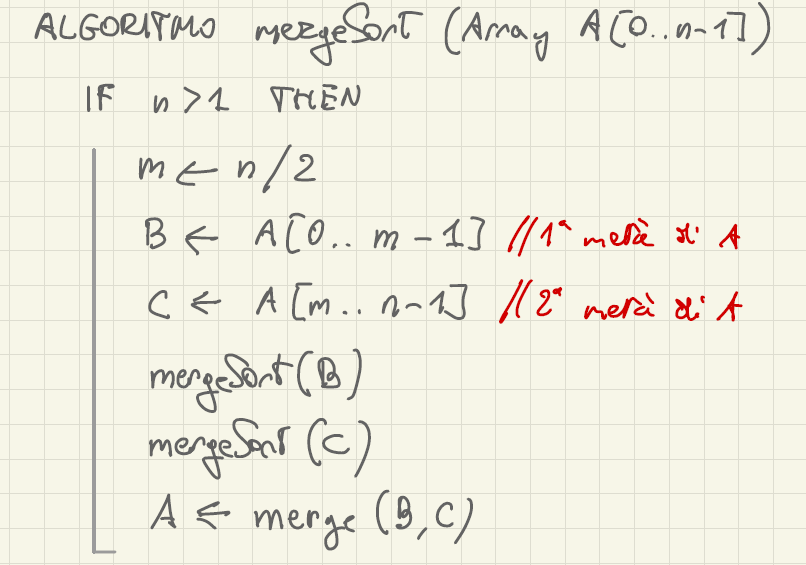 ALGORITMO mergeSort (Array A[0..n-1])
IF n>1 THEN
m ← n/2
B ← A[0.. m-1] //1ª metà di A
C ← A[m.. n-1] //2ª metà di A
mergeSort(B)
mergeSort(C)
A ← merge (B,C)